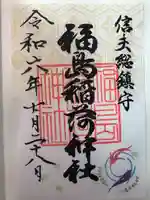 信夫総鎮守
福島稲荷神社
令和六年十月二十八日